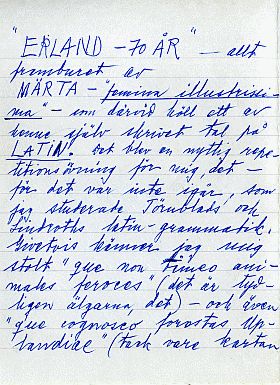 "ERLAND – 70 ÅR" – allt
framburet av
MÄRTA – "femina illustrissi-
ma" – som därvid höll ett av
henne själv skrivet tal på
LATIN! Det blev en nyttig repe-
titionsövning för mig, det –
för det var inte igår, som
jag studerade Törnblads och
Lindroths latin-grammatik.
Givetvis känner jag mig
stolt "que non timeo ani-
males feroces" (det är tyd-
ligen älgarna, det) – och även
"que cognosco forestas Up-
landiae" (tack vare kartan